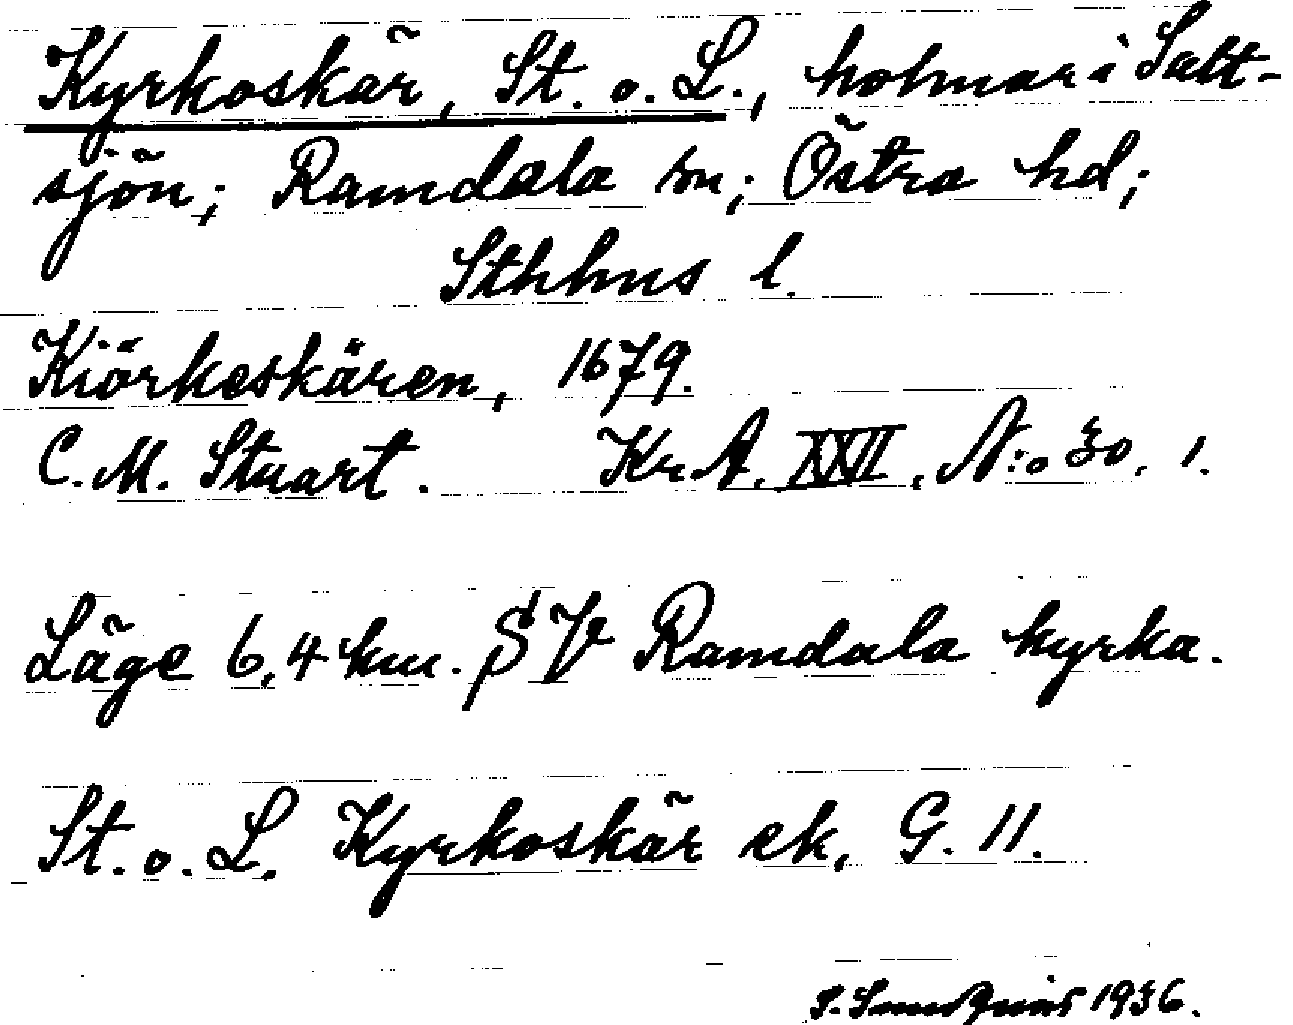 Kyrkoskär, St. o. L., holmar i Salt-
sjön; Ramdala sn; Östra hd;
Sthhns l.
Kiörkeskären, 1679.
C. M. Stuart. Kr. A. XXII. N:o 30. 1.
Läge 6,4 km. SV Ramdala kyrka.
St. o. L. Kyrkoskär ek. G. 11.
1936.